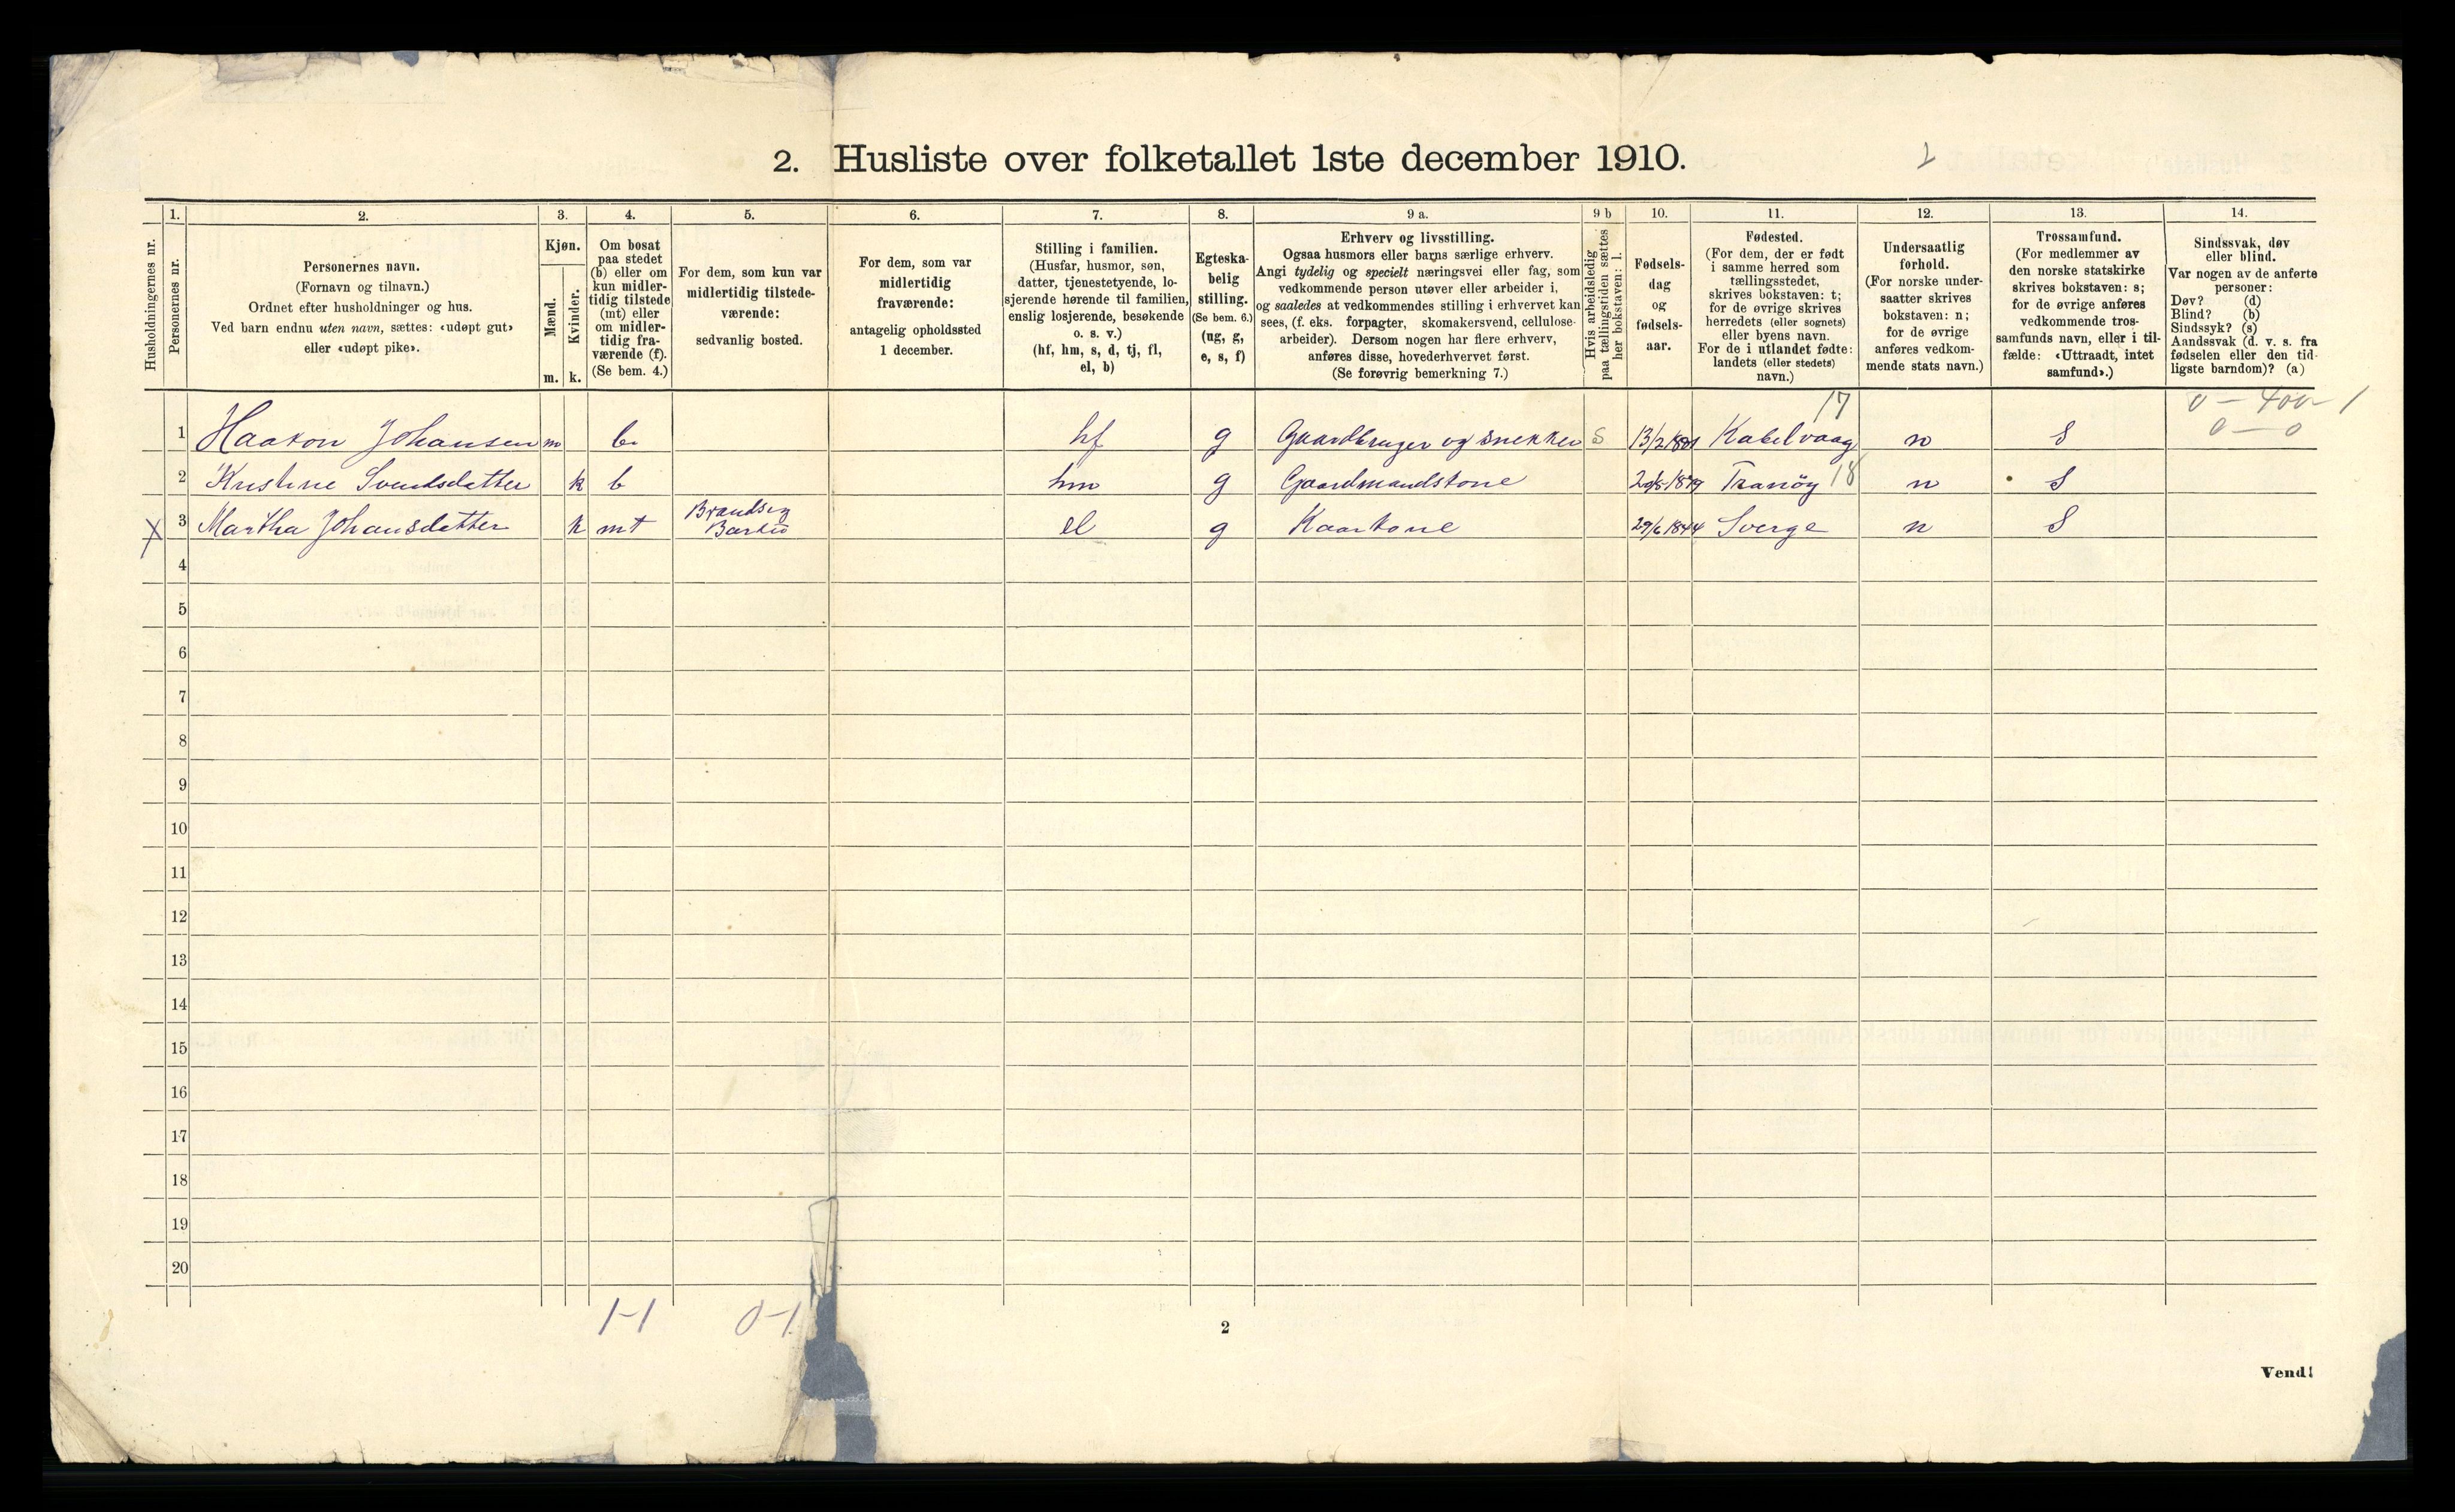 2. Husliste over folketallet 1ste december 1910.
1. 2. 3. 4. 5. 6. 7. 8. 9 a. 9 b 10. 11. 12. 13. 14.
Husholdningernes nr.
Personernes nr.
Personernes navn.
(Fornavn og tilnavn.)
Ordnet efter husholdninger og hus.
Ved barn endnu uten navn, sættes: «udøpt gut»
eller «udøpt pike».
Kjøn.
Mænd.
Kvinder.
m. k.
Om bosat
paa stedet
(b) eller om
kun midler-
tidig tilstede
(mt) eller
om midler-
tidig fra-
værende (f).
(Se bem. 4.)
For dem, som kun var
midlertidig tilstede-
værende:
sedvanlig bosted.
For dem, som var
midlertidig
fraværende:
antagelig opholdssted
1 december.
Stilling i familien.
(Husfar, husmor, søn,
datter, tjenestetyende, lo-
sjerende hørende til familien,
enslig losjerende, besøkende
o. s. v.)
(hf, hm, s, d, tj, fl,
el, b)
Egteska-
belig
stilling.
(Se bem. 6.)
(ug, g,
e, s, f)
Erhverv og livsstilling.
Ogsaa husmors eller barns særlige erhverv.
Angi tydelig og specielt næringsvei eller fag, som
vedkommende person utøver eller arbeider i,
og saaledes at vedkommendes stilling i erhvervet kan
sees, (f. eks. forpagter, skomakersvend, cellulose-
arbeider). Dersom nogen har flere erhverv,
anføres disse, hovederhvervet først.
(Se forøvrig bemerkning 7.)
Hvis arbeidsledig
paa tællingstiden sættes
her bokstaven: l.
Fødsels-
dag
og
fødsels-
aar.
Fødested.
(For dem, der er født
i samme herred som
tællingsstedet,
skrives bokstaven: t;
for de øvrige skrives
herredets (eller sognets)
eller byens navn.
For de i utlandet fødte:
landets (eller stedets)
navn.)
Undersaatlig
forhold.
(For norske under-
saatter skrives
bokstaven: n;
for de øvrige
anføres vedkom-
mende stats navn.)
Trossamfund.
(For medlemmer av
den norske statskirke
skrives bokstaven: s;
for de øvrige anføres
vedkommende tros-
samfunds navn, eller i til-
fælde: «Uttraadt, intet
samfund».)
Sindssvak, døv
eller blind.
Var nogen av de anførte
personer:
Døv? (d)
Blind? (b)
Sindssyk? (s)
Aandssvak (d. v. s. fra
fødselen eller den tid-
ligste barndom)? (a)
17 0 - 400 - 1
0 - 0
1 Haakon Johansen m b hf g Gaardbruger og snekker S 13/2 Kabelvaag n S
2 Kristine Svendsdatter k b hm g Gaardmandskone 1879 Tranöy 18 n S
Brandseg
X 3 Martha Johansdatter k mt el g Kaarkone 29/6 1844 Sverge n S
4
5
6
7
8
9
10
11
12
13
14
15
16
17
18
19
20
1-1 0-1
2
Vend!